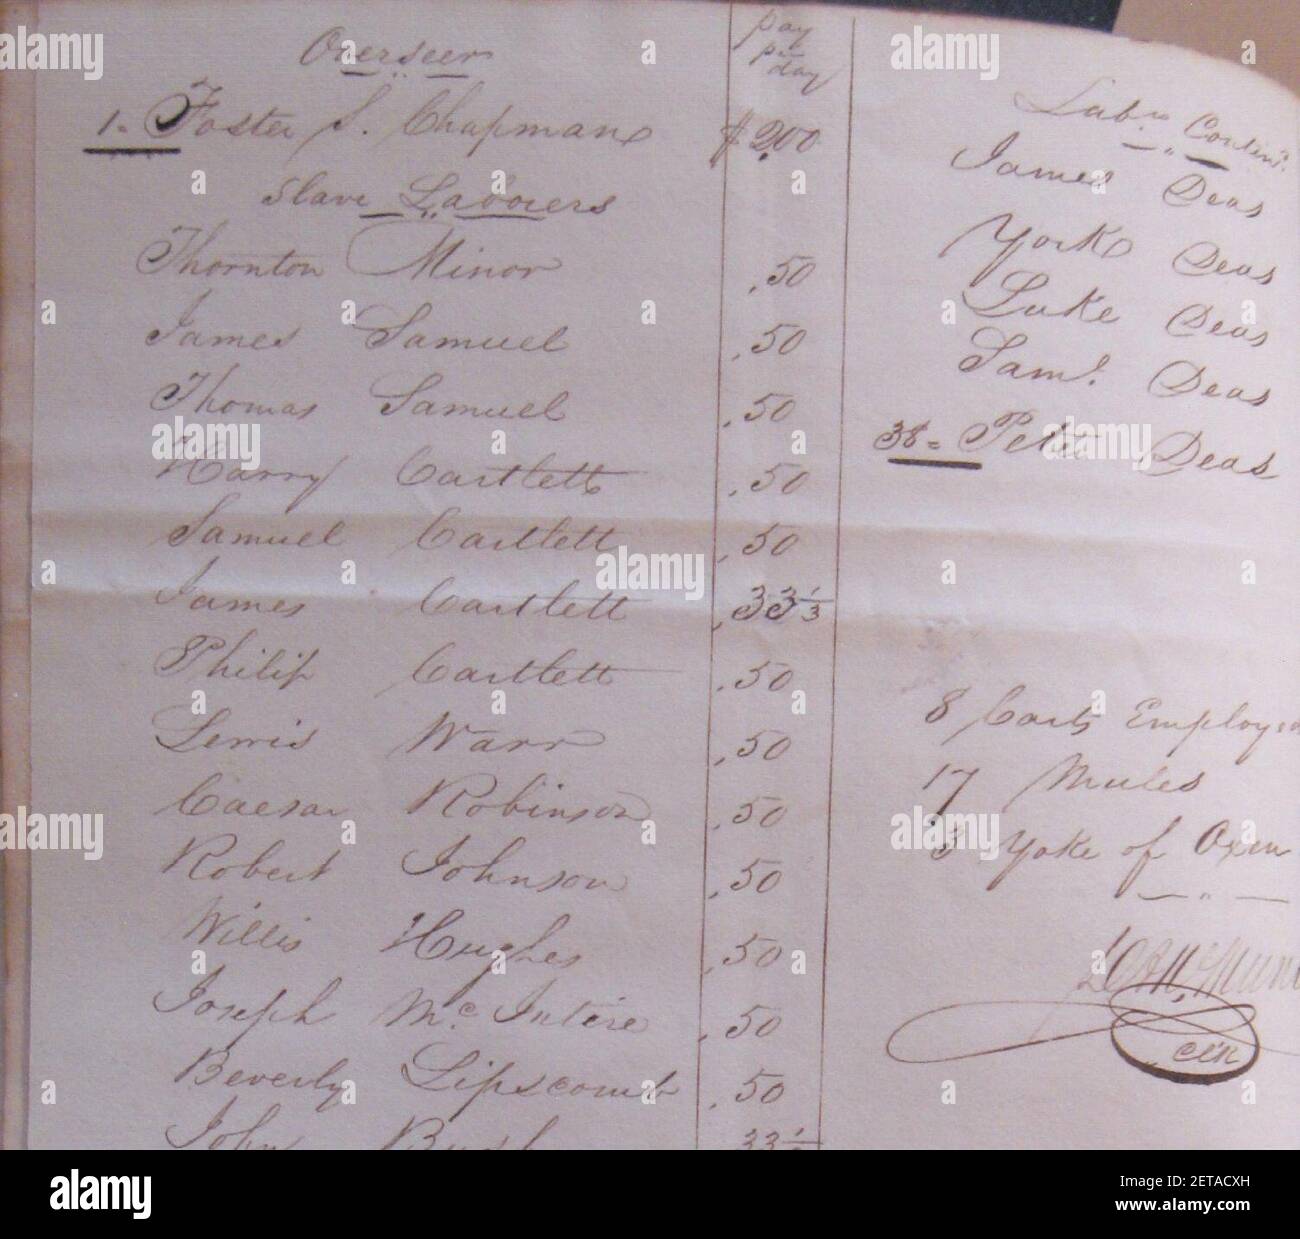 Overseer
pay
pr
day
1. Foster S. Chapman $2.00
Slave Laborers
Thornton Minor .50
James Samuel .50
Thomas Samuel .50
Harry Cartlett .50
Samuel Cartlett .50
James Cartlett .33 1/3
Philip Cartlett .50
Lewis Warr .50
Caesar Robinson .50
Robert Johnson .50
Willis Hughes .50
Joseph McIntire .50
Beverly Lipscomb .50
John
Labrs Contind.
James Deas
York Deas
Luke Deas
Saml. Deas
38 = Peter Deas
8 Carts Employed
17 Mules
3 Yoke of Oxen
alamy
Image ID: 2ETACXH
www.alamy.com